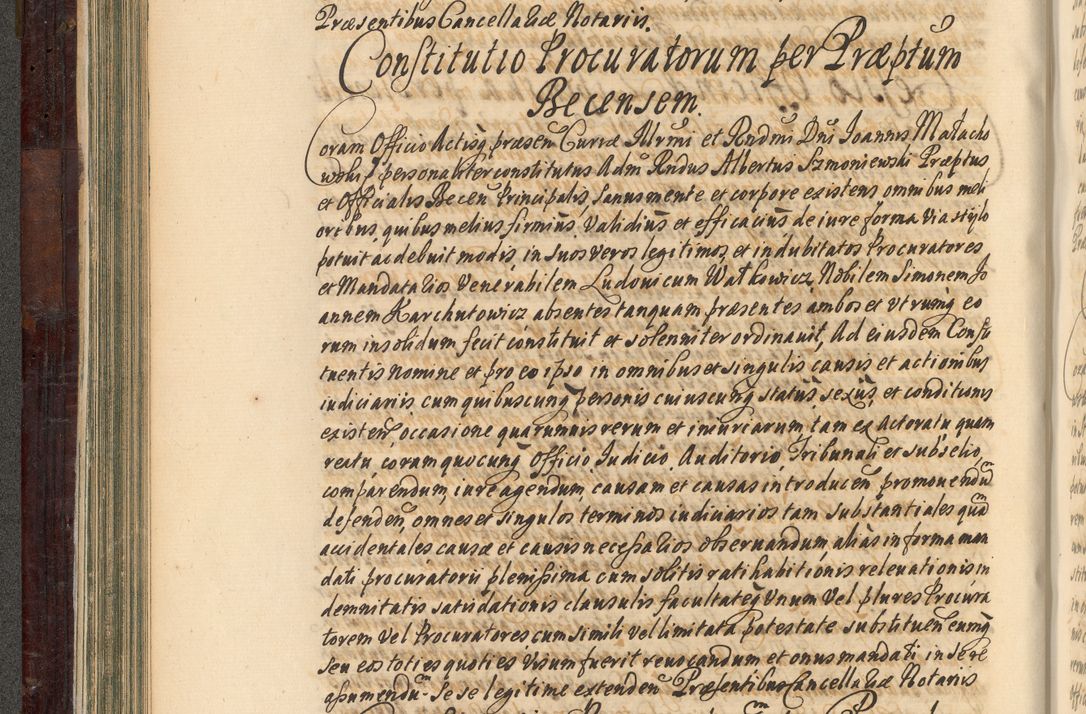 Præsentibus Cancellariæ Notariis.
Constitutio Procuratorum per Præptum
Becensem.
Coram Officio Actisq præsen Curiæ Illrmi et Rndmi Dni Joannis Małacho
wski personaliter constitutus Adm Rndus Albertus Szmoniewski Præptus
et Officialis Becen Principalis, sanus mente et corpore existens omnibus meli
oribus, quibus melius firmius, validius et efficacius de iure forma via stylo
potuit ac debuit modis, in suos veros legitimos, et indubitatos Procuratores
et Mandatarios Venerabilem Ludovicum Watkowicz, Nobilem Simonem Jo
annem Karchutowicz absentes tanquam præsentes ambos et utrumq eo
rum in solidum fecit constituit et solenniter ordinauit, Ad eiusdem Consti
tuentis nomine et pro eo ipso in omnibus et singulis causis et actionibus
iudiciariis cum quibuscunq personis cuiuscunq status sexus, et conditionis
existen, occasione quarumuis rerum et iniuriarum tam ex Actoratu quam
reatu, coram quocunq Officio, Judicio, Auditorio, Tribunali et subselio,
comparendum, iure agendum, causam et causas introducen, promouendum
defenden, omnes et singulos terminos iudiciarios tam substantiales quam
accidentales causæ et causis necessarios obseruandum alias in forma man
dati procuratorii plenissima cum solitis ratihabitionis releuationis in
demnitatis satisdationis clausulis facultateq Unum vel plures Procura
torem vel Procuratores cum simili vel limitata potestate substituen eumq
seu eos toties quoties visum fuerit reuocandum et onus mandati in se re
assumendum. Se se legitime extenden Præsentibus Cancellariæ Notariis